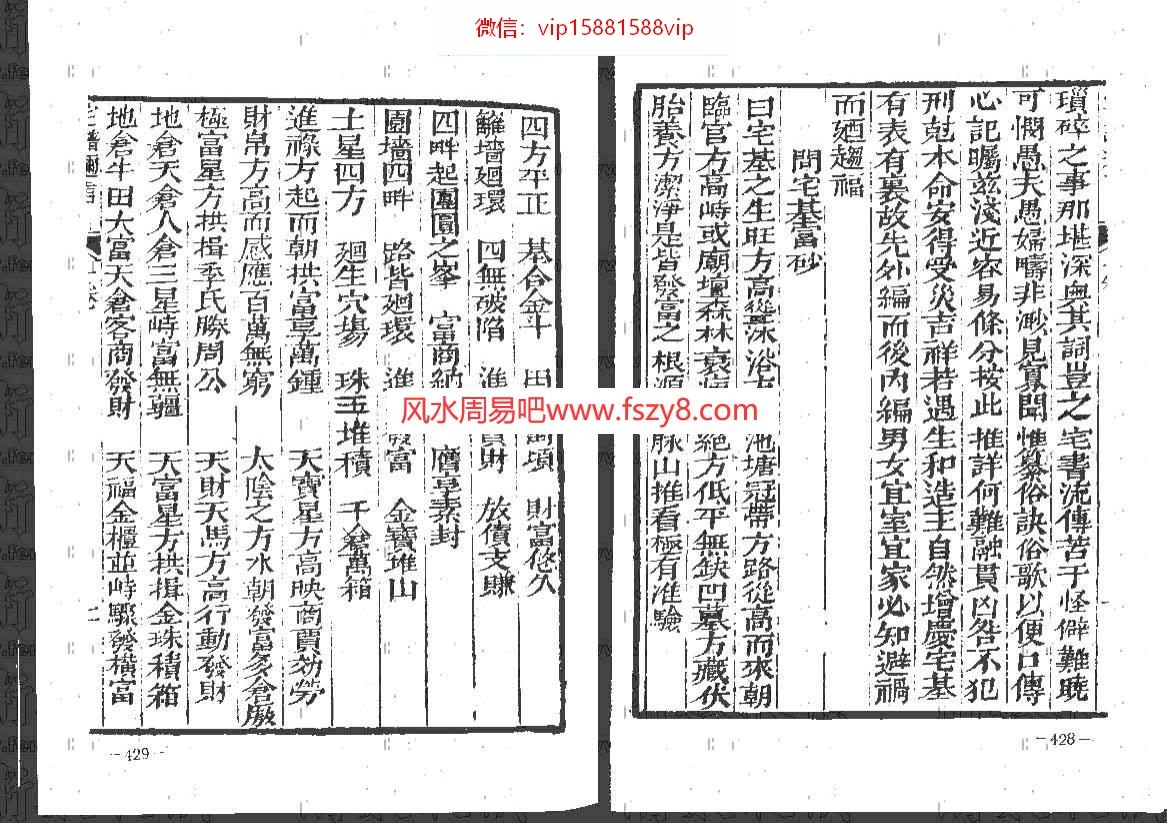 微信：vip15881588vip
瑣碎之事那堪深奥其詞豈之宅書流傳苦于怪僻難曉
可憫愚夫愚婦疇非渺見寡聞惟纂俗訣俗歌以便口傳
心記矚兹淺近容易條分按此推詳何難融貫凶咎不犯
刑尅本命安得受災吉祥若遇生和造主自然增慶宅基
有表有裏故先外編而後内編男女宜室宜家必知避禍
而廼趨福
問宅基富砂
曰宅基之生旺方高聳沐浴方池塘冠帶方路從高而來朝
臨官方高峙或廟壇森林衰 絕方低平無缺凹墓方藏伏
胎養方潔淨是皆發富之根源 脉山推看極有准驗
-428-
四方平正 基合金斗 田 頃 財富悠久
觧墻廻環 四無破陷 進 財 放債支賺
四畔起團圓之峯 富商納 膺享素封
圍墻四畔 路皆廻環 進 發富 金寶堆山
土星四方 廻生穴場 珠玉堆積 千倉萬箱
進祿方起而朝拱富享萬鍾 天寶星方高映商賈効勞
財帛方高而感應百萬無窮 太陰之方水朝發富多倉廒
極富星方拱揖季氏勝周公 天財天馬方高行動發財
地倉天倉人倉三星峙富無疆 天富星方拱揖金珠積箱
地倉牛田大富天倉客商發財 天福金櫃並峙驟發橫富
-429-
风水周易吧www.fszy8.com